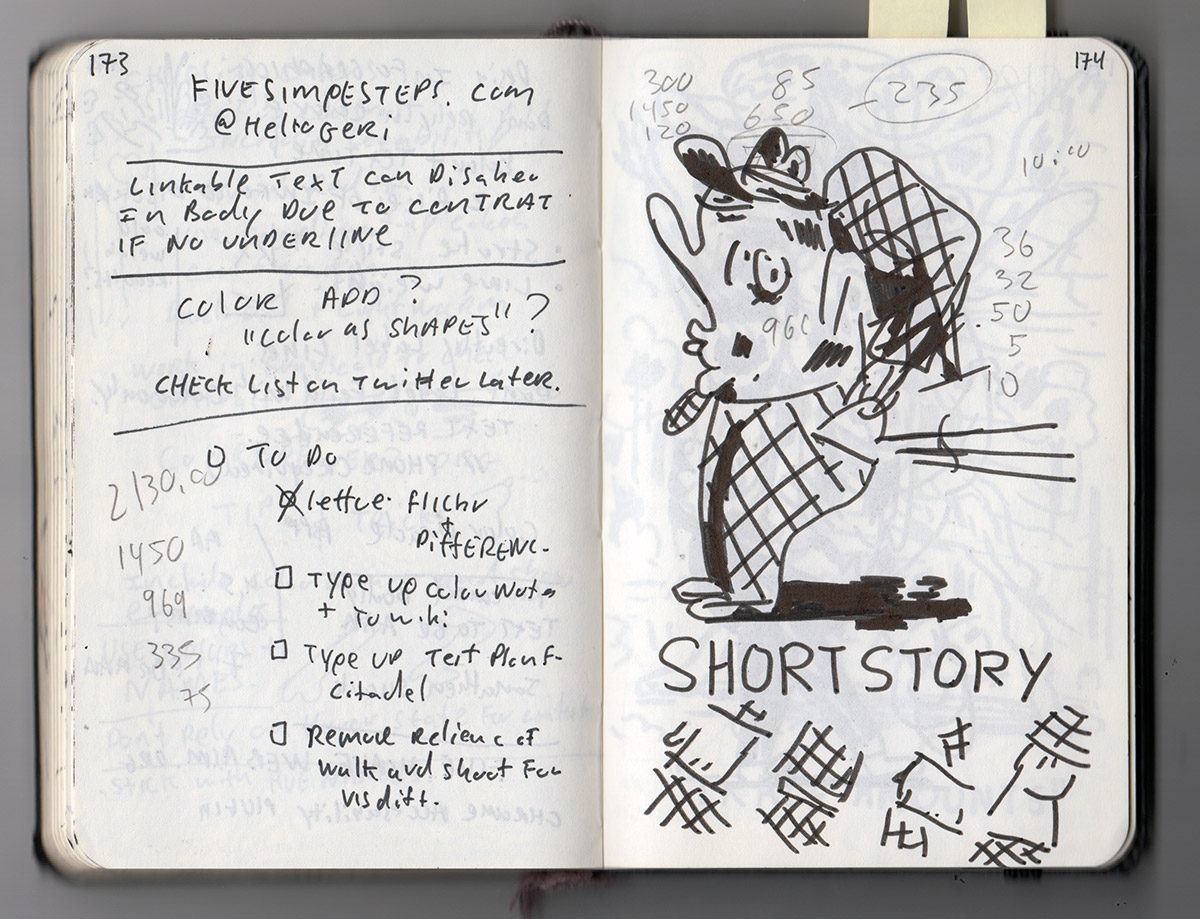 173
FIVESIMPESTEPS. COM
@HeltoGeRi
Linkable Text can Disapper
In Body Due to CONTRAT
IF NO UNDERLINE
COLOR ADD ?
"Color as SHAPES" ?
CHECK List on Twitter Later.
TO DO
lettter flickr
+
DiffERENC.
TYPE UP Color Notes
+ To wiki
TYPE UP Test Plan F-
Citadel
Remove Relience of
Walk and Shoot For
Visdiff.
2130.00
1450
969
335
75
174
300 85 235
1450 650
120
10:00
36
32
50
5
10
960
SHORT STORY